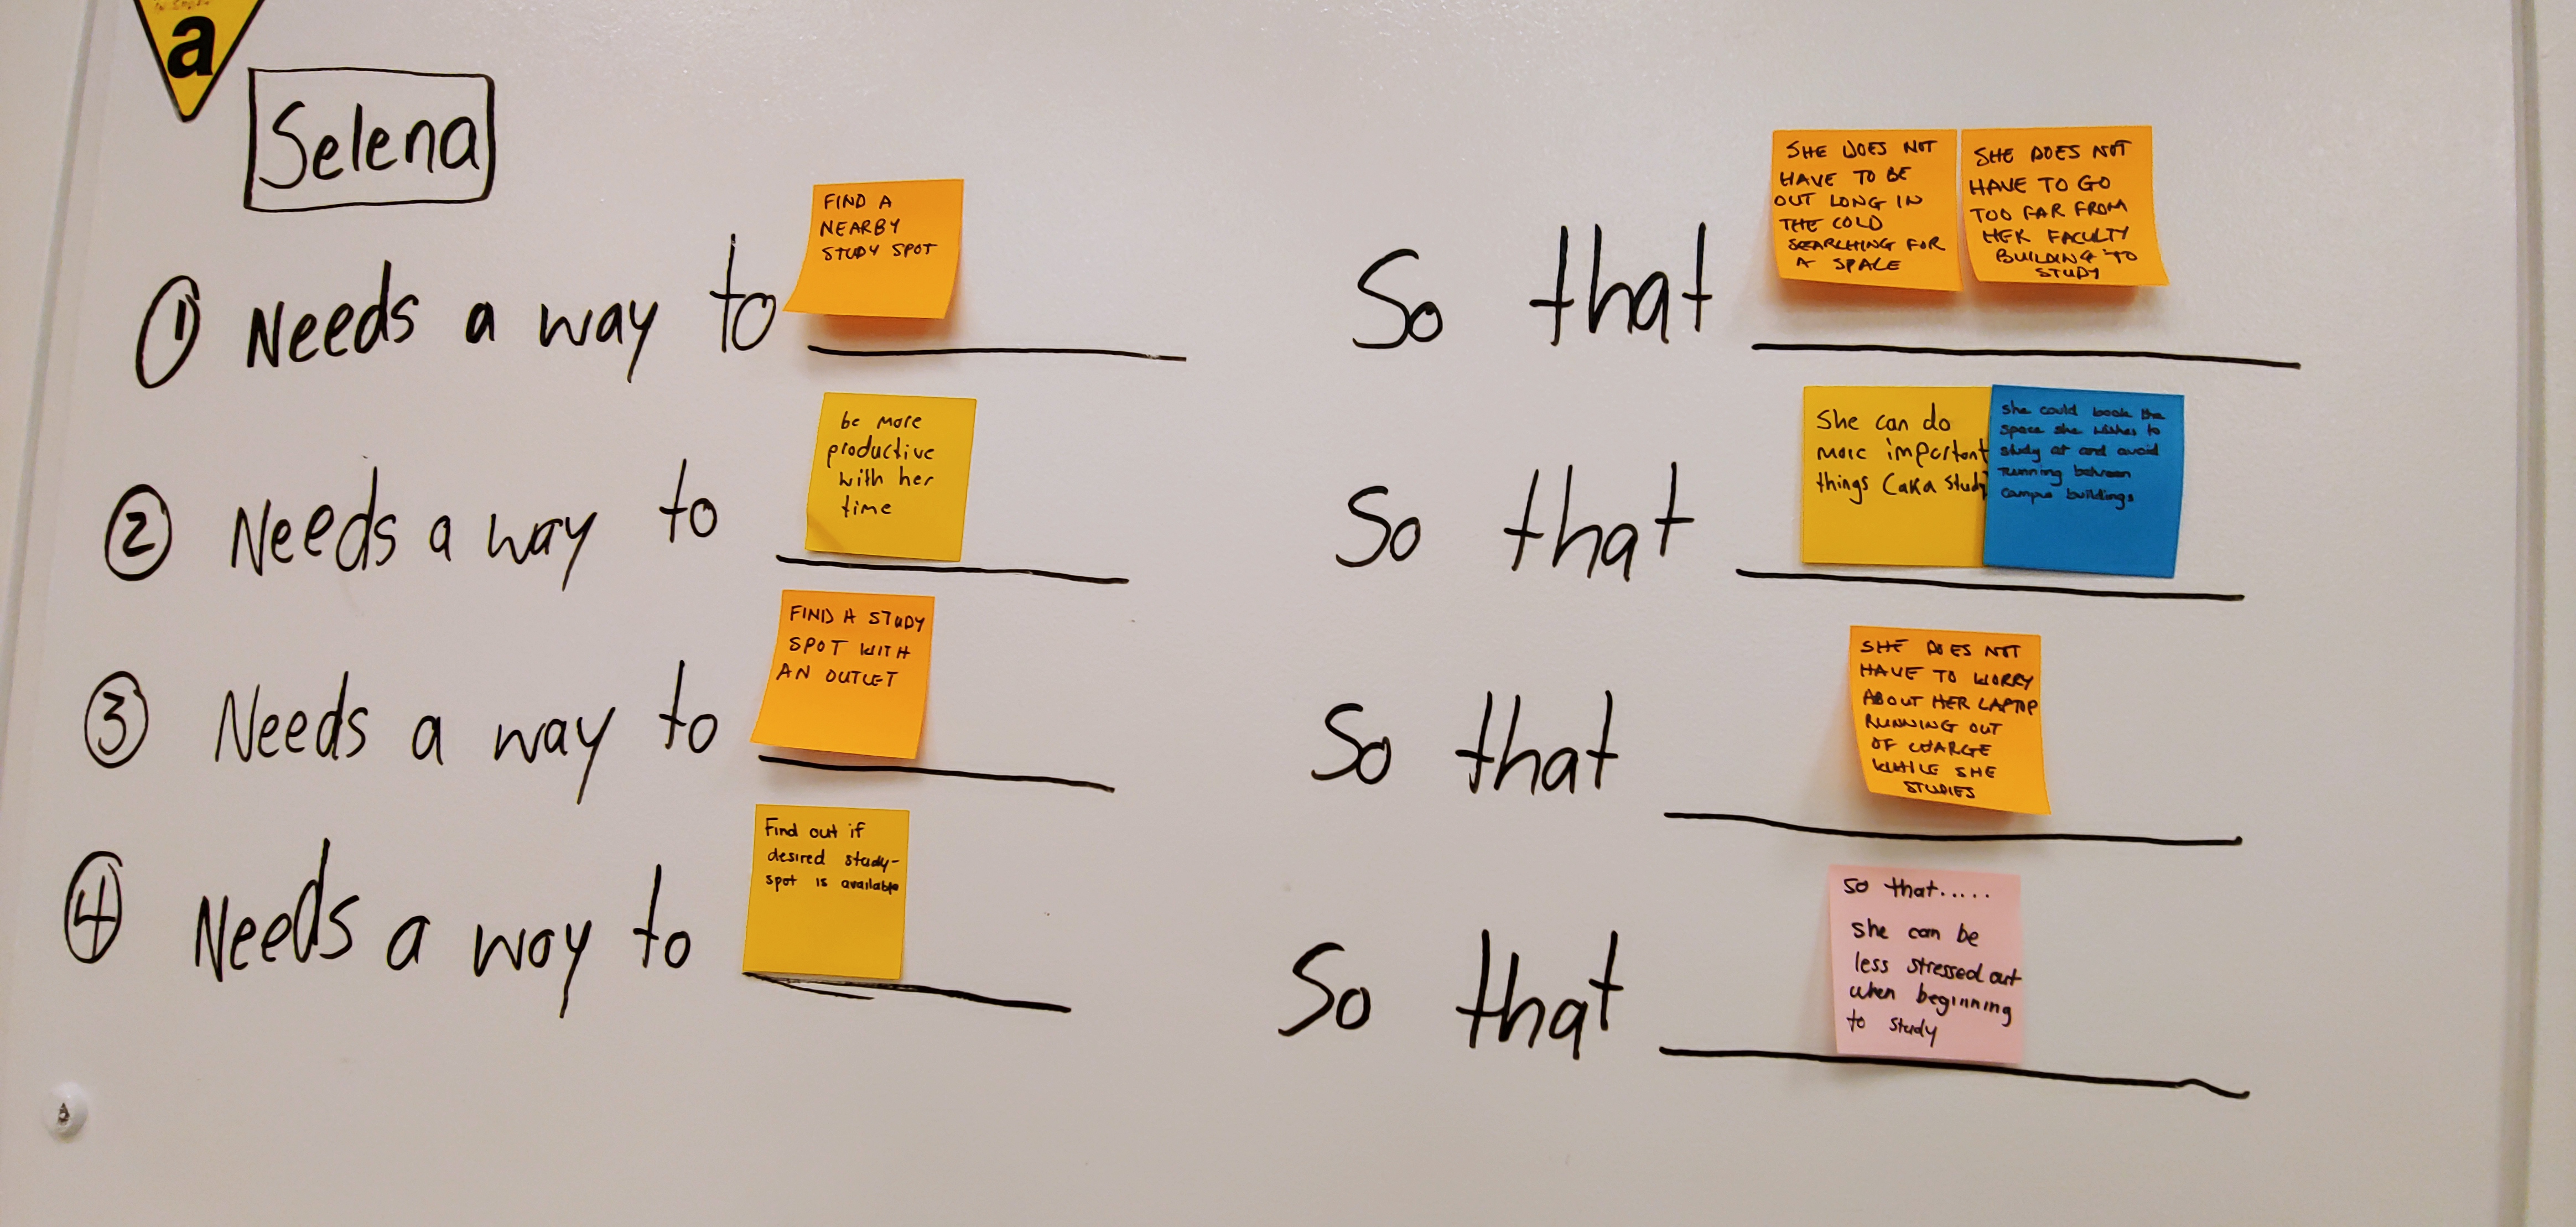 a
Selena
① Needs a way to
FIND A
NEARBY
STUDY SPOT
So that
SHE DOES NOT
HAVE TO BE
OUT LONG IN
THE COLD
SEARCHING FOR
A SPACE
SHE DOES NOT
HAVE TO GO
TOO FAR FROM
HER FACULTY
BUILDING TO
STUDY
② Needs a way to
be more
productive
with her
time
So that
She can do
more important
things (aka study
she could book the
space she wishes to
study at and avoid
running between
campus buildings
③ Needs a way to
FIND A STUDY
SPOT WITH
AN OUTLET
So that
SHE DOES NOT
HAVE TO WORRY
ABOUT HER LAPTOP
RUNNING OUT
OF CHARGE
WHILE SHE
STUDIES
④ Needs a way to
Find out if
desired study-
spot is available
So that
so that.....
she can be
less stressed out
when beginning
to study